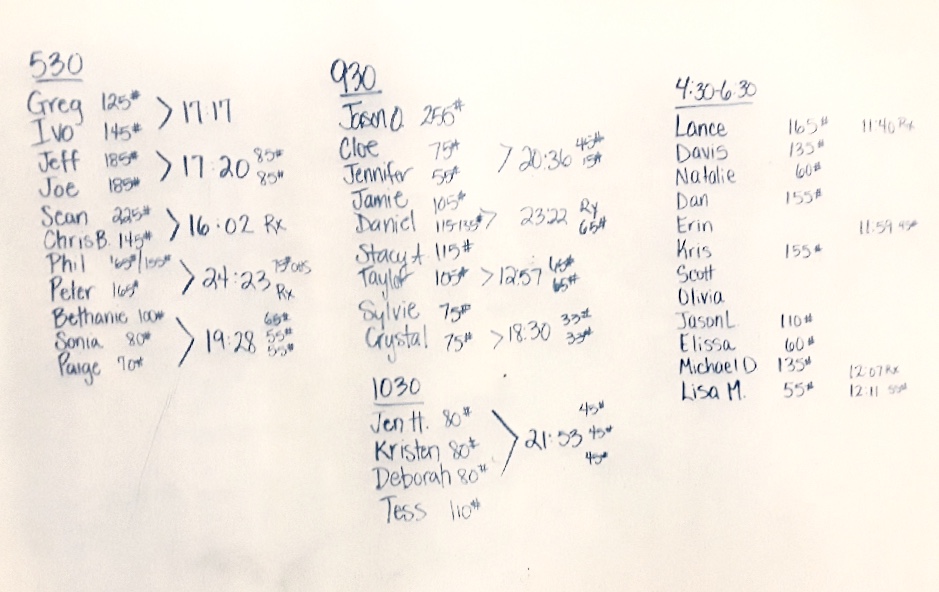 530
Greg 125# > 17:17
Ivo 145#
Jeff 185# > 17:20 85#
Joe 185# 85#
Sean 225# > 16:02 Rx
Chris B. 145#
Phil 165#/155# > 24:23 75# OHS
Peter 165# Rx
Bethanie 100# 65#
Sonia 80# > 19:28 55#
Paige 70# 55#
930
Jason O. 255#
Cloe 75# > 20:36 45#
Jennifer 55# 15#
Jamie 105#
Daniel 115-135# > 23:22 Rx 65#
Stacy A 115#
Taylor 105# > 12:57 65# 65#
Sylvie 75#
Crystal 75# > 18:30 33# 33#
1030
Jen H. 80# 45#
Kristen 80# > 21:53 45#
Deborah 80# 45#
Tess 110#
4:30-6:30
Lance 165# 11:40 Rx
Davis 135#
Natalie 60#
Dan 155#
Erin 11:59 45#
Kris 155#
Scott
Olivia
Jason L. 110#
Elissa 60#
Michael D 135# 12:07 Rx
Lisa M. 55# 12:11 55#